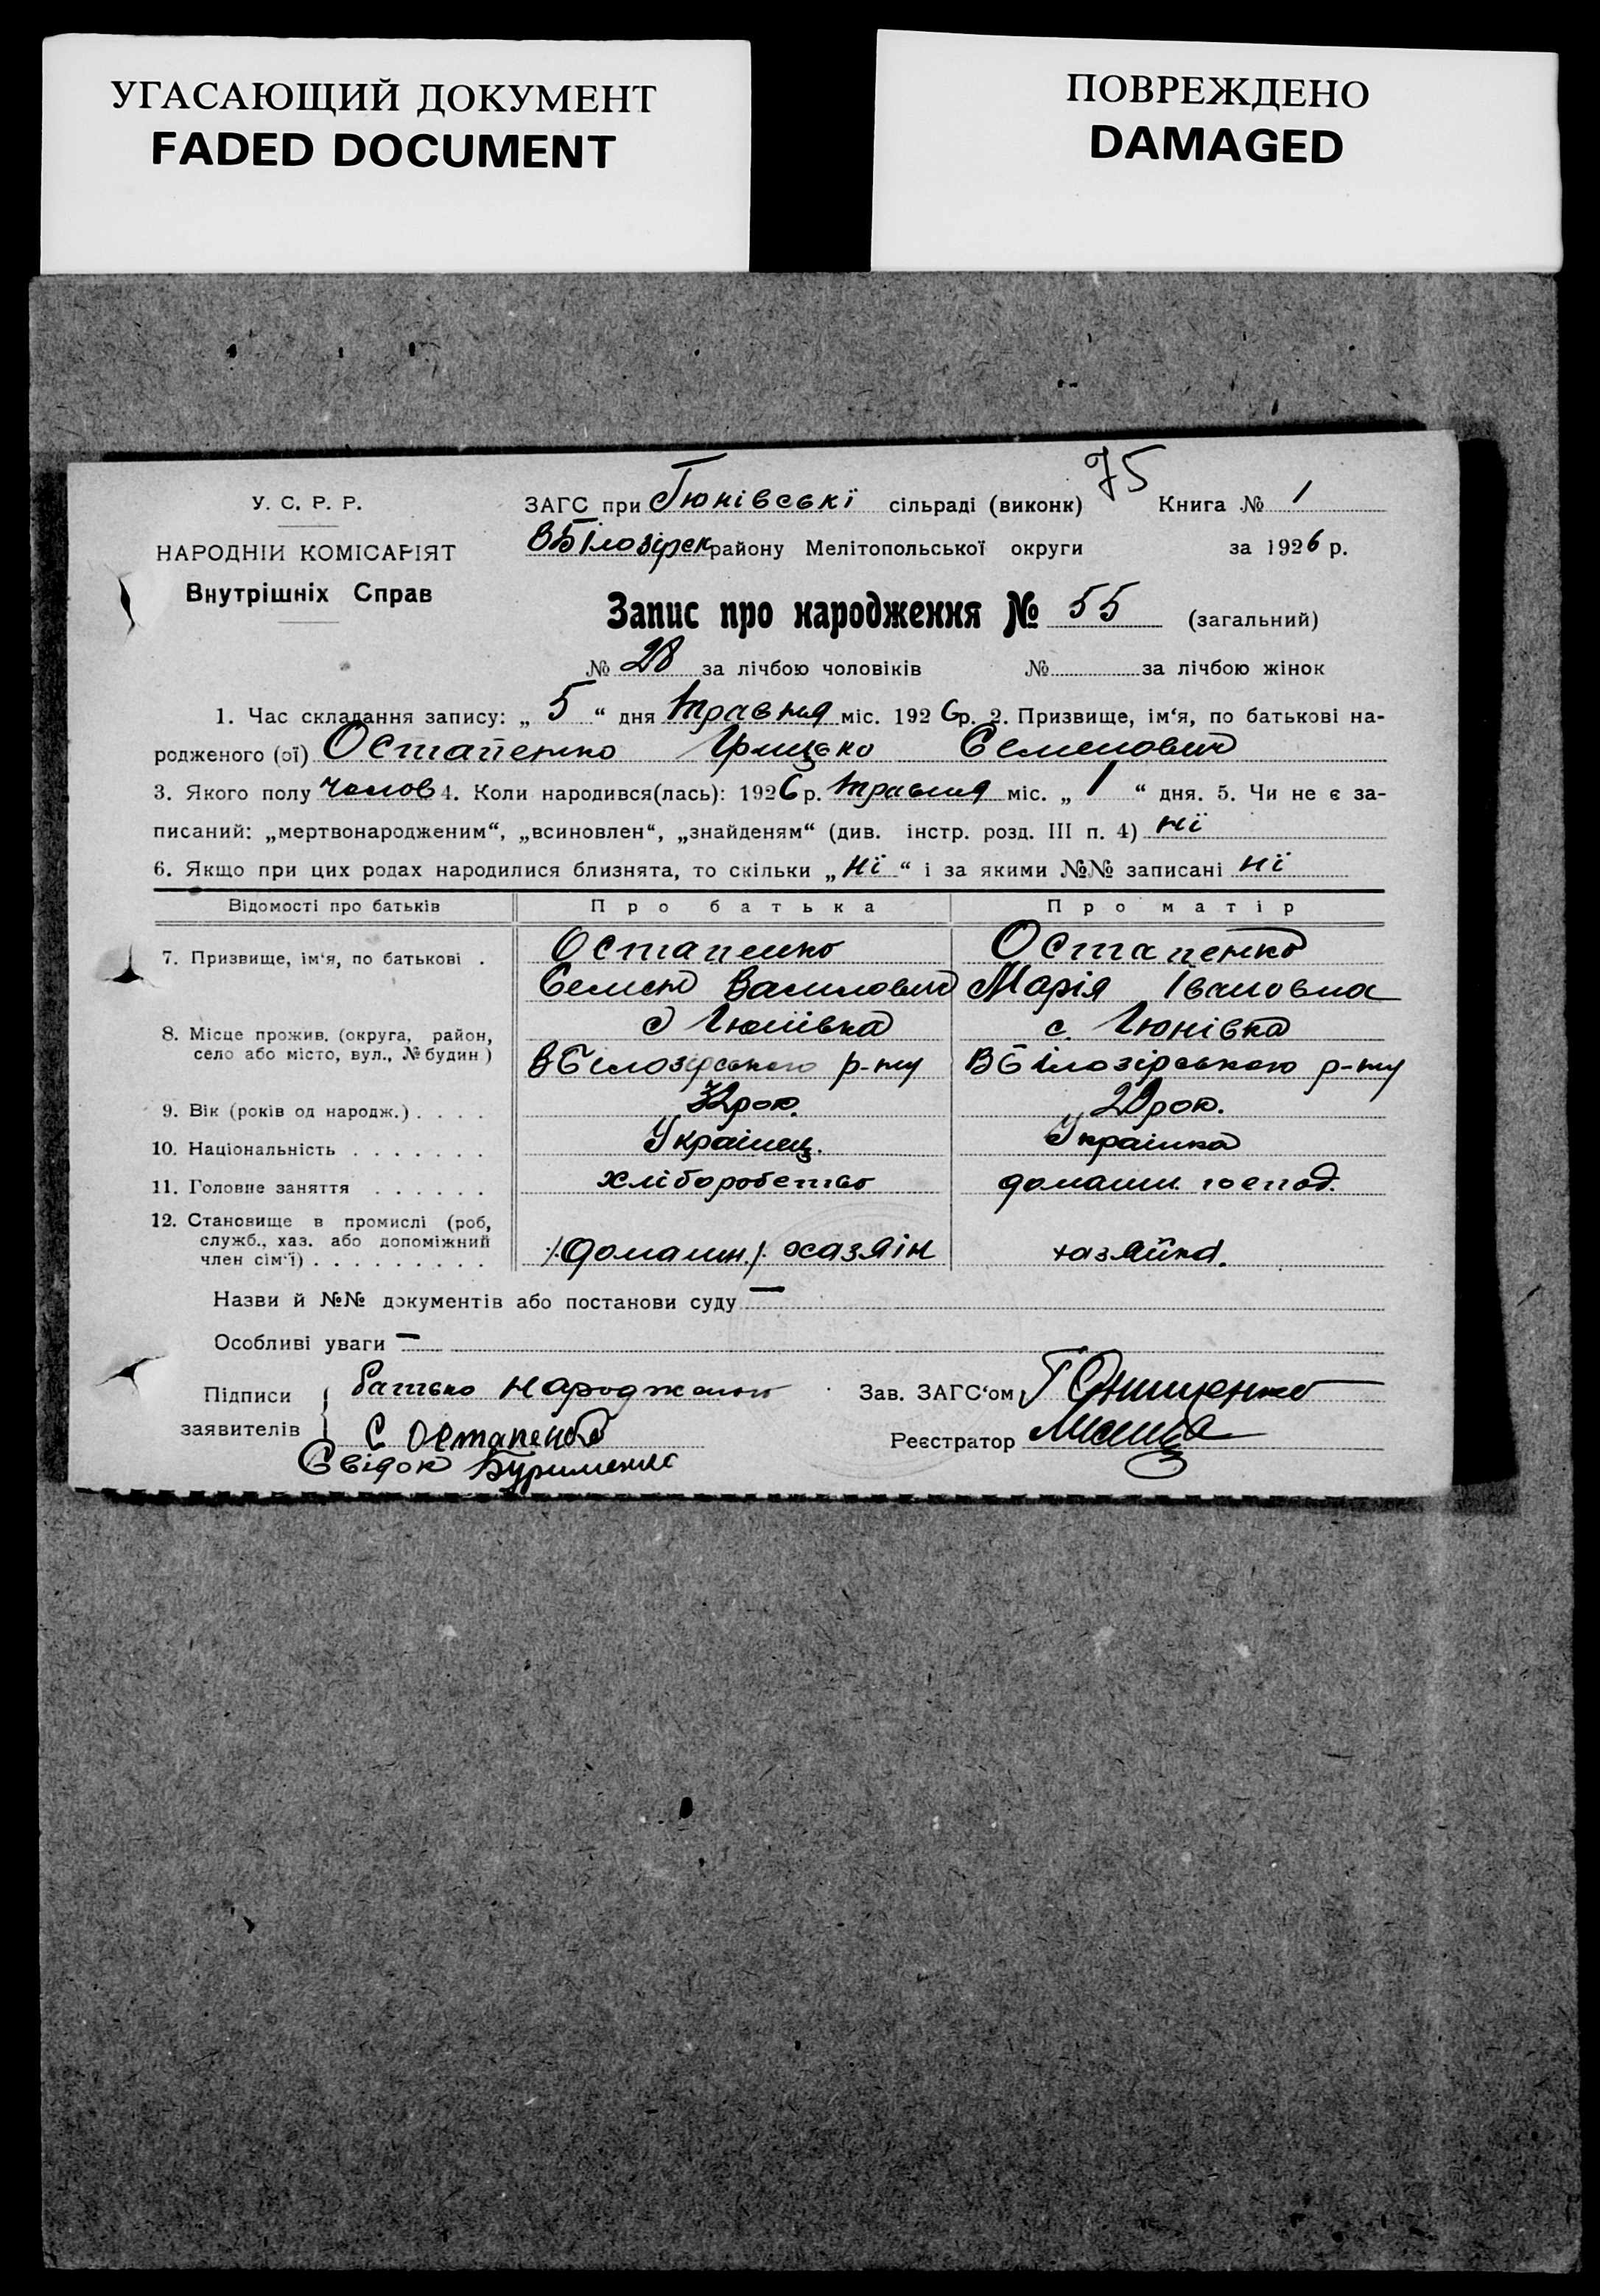 УГАСАЮЩИЙ ДОКУМЕНТ
FADED DOCUMENT
ПОВРЕЖДЕНО
DAMAGED
75
У. С. Р. Р.
НАРОДНІЙ КОМІСАРІЯТ
Внутрішніх Справ
ЗАГС при Гюнівські сільраді (виконк) Книга № 1
ВБілозірск району Мелітопольської округи за 1926 р.
Запис про народження № 55 (загальний)
№ 28 за лічбою чоловіків № за лічбою жінок
1. Час складання запису: „ 5 “ дня травня міс. 1926 р. 2. Призвище, ім‘я, по батькові на-
родженого (ої) Остапенко Грицько Семенович
3. Якого полу чолов 4. Коли народився(лась): 1926 р. травня міс. „ 1 “ дня. 5. Чи не є за-
писаний: „мертвонародженим“, „всиновлен“, „знайденям“ (див. інстр. розд. III п. 4) ні
6. Якщо при цих родах народилися близнята, то скільки „ ні “ і за якими №№ записані ні
Відомості про батьків Про батька Про матір
7. Призвище, ім‘я, по батькові . Остапенко Остапенко
Семен Василович Марія Івановна
8. Місце прожив. (округа, район, село або місто, вул., № будин) с Гюнівка с. Гюнівка
ВБілозірського р-ну ВБілозірського р-ну
9. Вік (років од народж.) . . . . 32 рок. рок.
10. Національність . . . . . . . Українец. Українка
11. Головне заняття . . . . . . хліборобство домашн. господ.
12. Становище в промислі (роб,
служб., хаз. або допоміжний
член сім‘ї) . . . . . . . . . /домашн./ хазяін хазяйка.
Назви й №№ документів або постанови суду —
Особливі уваги —
Підписи заявителів батько народженого
С Остапенко
Свідок Бурименко
Зав. ЗАГС‘ом Г Онищенко
Реєстратор